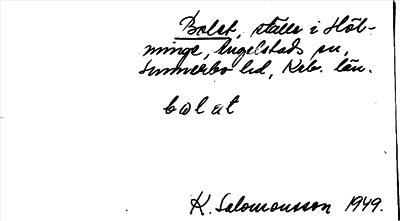 Bolet, ställe i Höl-
minge, Ingelstads sn,
Sunnerbo hd, Krb. län.
bolat
K. Salomonsson 1949.